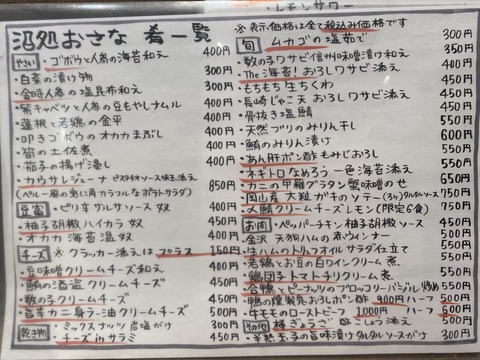 レモンサワー
沼処おさな 肴一覧
やさい ・ゴボウと人参の海苔和え 400円
・白菜の漬け物 300円
・金時人参の塩昆布和え 300円
・紫キャベツと人参の豆もやしナムル 400円
・蓮根と若鶏の金平 400円
・叩きゴボウのオカカまぶし 400円
・筍の土佐煮 400円
・茄子の揚げ浸し 400円
・カウサレジェーナ ピスタチオソース味玉添え 850円
(ペルー風の奥に角カラフルなポテトサラダ)
豆富 ・ピリ辛サルサソース奴 400円
・柚子胡椒ハイカラ奴 400円
・オカカ海苔塩奴 400円
チーズ ※クラッカー添えはプラス 150円
・豆味噌クリームチーズ和え 400円
・鮪の酒盗クリームチーズ 450円
・数の子クリームチーズ 450円
・旨辛カニ身ラー油クリームチーズ 500円
乾き物 ・ミックスナッツ岩塩がけ 300円
・チーズinサラミ 300円
※表示価格は全て税込み価格です
旬 ・ムカゴの塩茹で 300円
・数の子ワサビ信州味噌漬け和え 350円
・The海苔!おろしワサビ添え 400円
・もちもち生ちくわ 400円
・長崎じゃこ天おろしワサビ添え 450円
・骨抜き塩鯖 500円
・天然ブリのみりん干し 600円
・鮪のみりん漬け 500円
・あん肝ポン酢もみじおろし 550円
・ネギトロなめろう一色海苔添え 550円
・カニの甲羅グラタン蟹味噌のせ 650円
・岡山産大粒ガキのソテー(3ヶ)タルタルソース 750円
・〆鯖クリームチーズレモン(限定6食) 750円
お肉 ・ペッパーチキン柚子胡椒ソース 400円
・金沢天狗ハムの赤ウィンナー 500円
・牛ハツのトリュフオイルサラダ仕立て 550円
・若鶏とお豆の白ワインクリーム煮 550円
・鶏団子トマトチリクリーム煮 550円
・合鴨とピーナッツのブロッコリーバジル炒め 550円
・鴨の燻製炙おろしポン酢 900円 ハーフ 500円
・牛モモのローストビーフ 1000円 ハーフ 600円
その他 ・棒ぎょうざ 酢こしょう添え 500円
・半熟玉子の旨味漬けタルタルソースがけ 300円